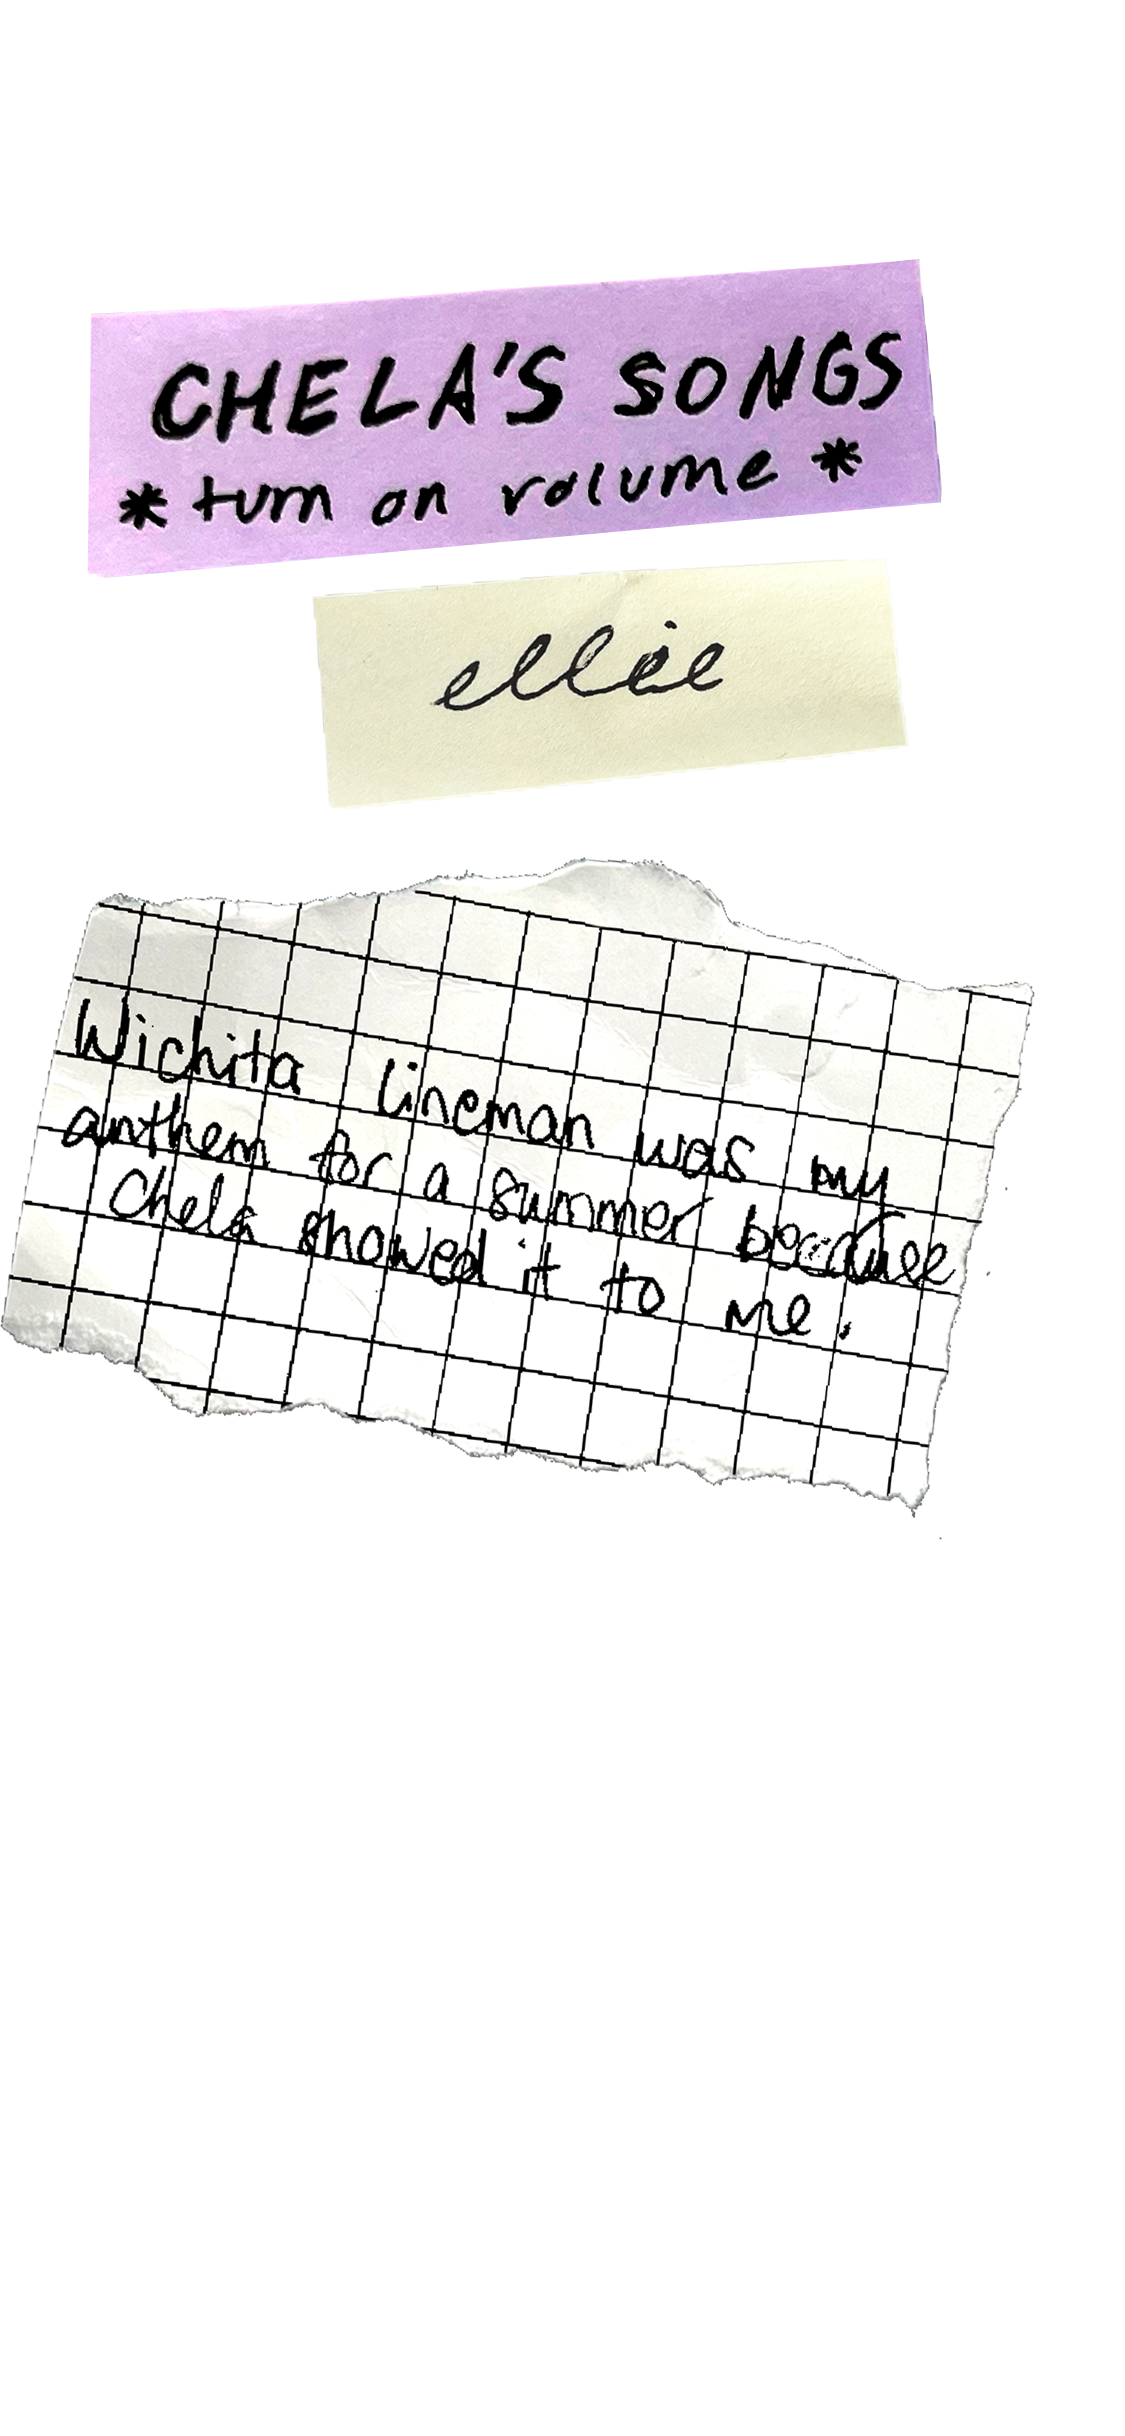 CHELA'S SONGS
* turn on volume *
ellie
Wichita lineman was my
anthem for a summer because
Chela showed it to me.